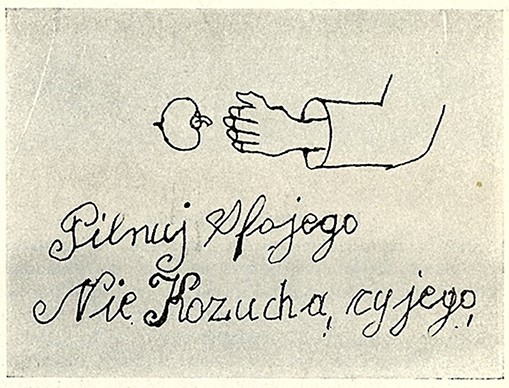 Pilnuj Sfojego
Nie Kozucha, cyjego,